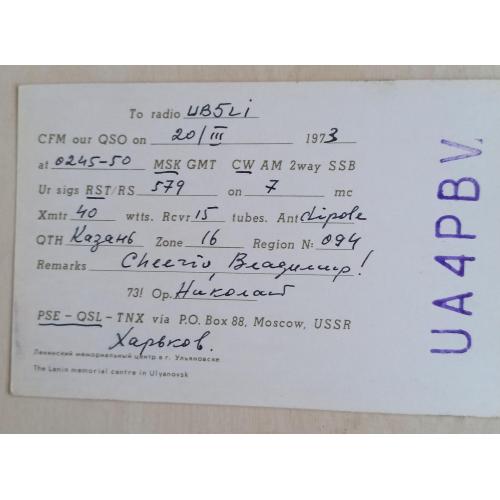 To radio UB5Li
CFM our QSO on 20/III 1973
at 0245-50 MSK GMT CW AM 2way SSB
Ur sigs RST/RS 579 on 7 mc
Xmtr 40 wtts. Rcvr 15 tubes. Ant dipole
QTH Казань Zone 16 Region N: 094
Remarks Cheerio, Владимир!
73! Op. Николай
PSE - QSL - TNX via P.O. Box 88, Moscow, USSR
Харьков.
Ленинский мемориальный центр в г. Ульяновске
The Lenin memorial centre in Ulyanovsk
UA4PBV